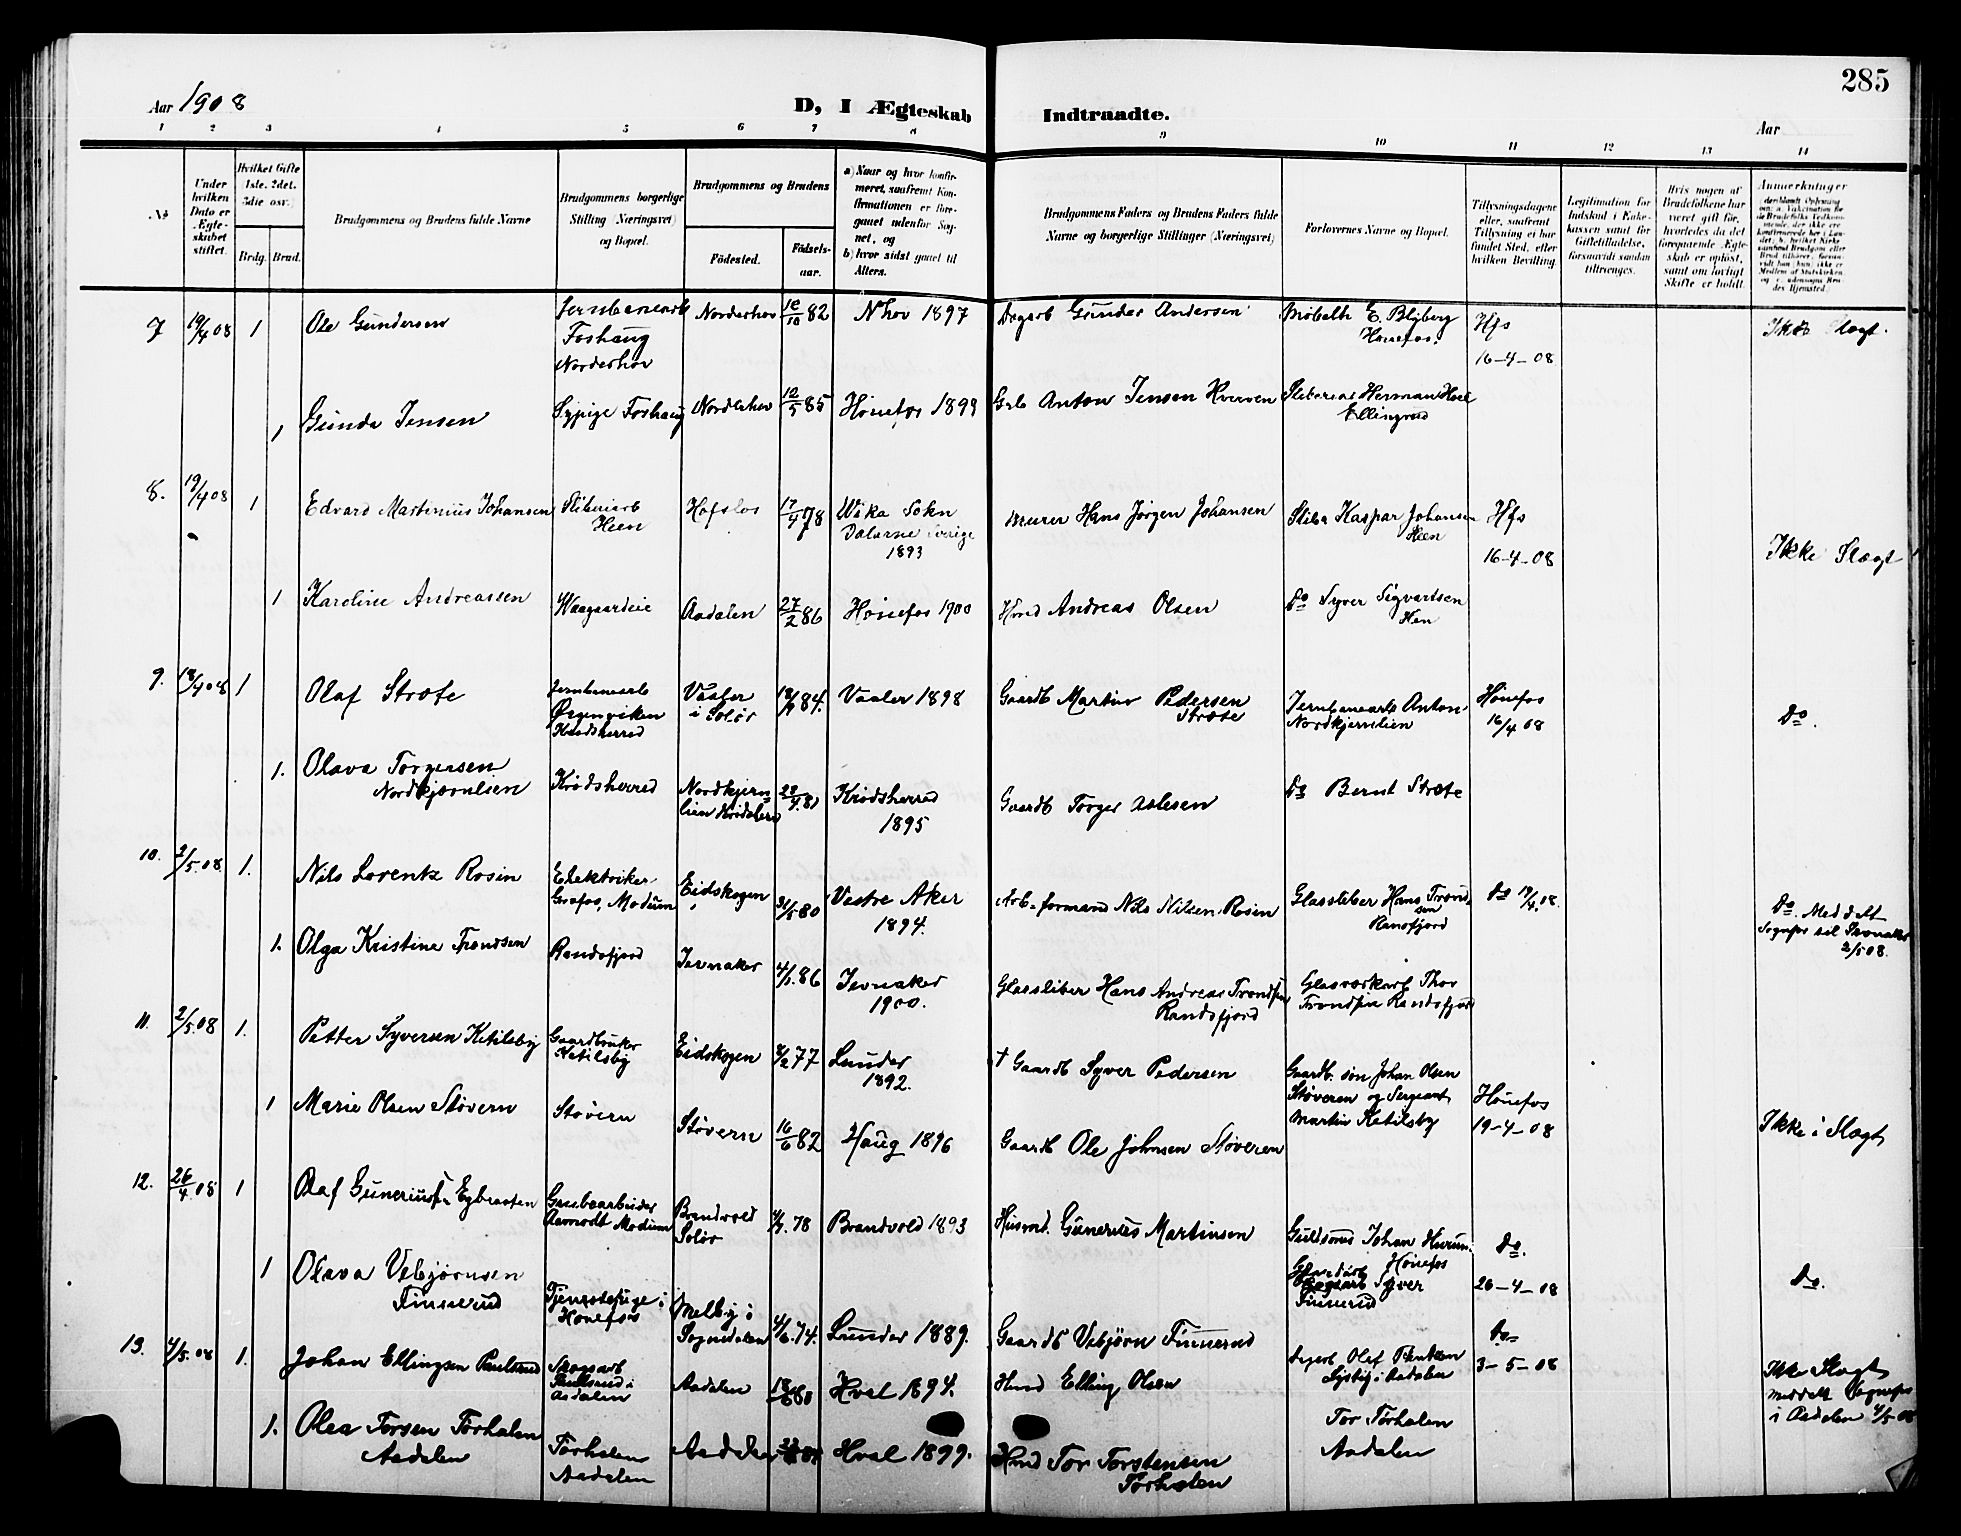 285
Aar 1908
D, I Ægteskab
Indtraadte.
Aar
1 2 3 4 5 6 7 8 9 10 11 12 13 14
№
Under hvilken Dato er Ægteskabet stiftet.
Hvilket Gifte 1ste, 2det, 3die osv.)
Brdg. Brud.
Brudgommens og Brudens fulde Navne
Brudgommens borgerlige Stilling (Næringsvei) og Bopæl.
Brudgommens og Brudens
Födested.
Födsels-aar.
a) Naar og hvor konfirmeret, saafremt Konfirmationen er foregaaet udenfor Sognet, og
b) hvor sidst gaaet til Alters.
Brudgommens Faders og Brudens Faders fulde Navne og borgerlige Stillinger (Næringsvei)
Forlovernes Navne og Bopæl.
Tillysningsdagene eller, saafremt Tillysning ei har fundet Sted, efter hvilken Bevilling.
Legitimation for Indskud i Enkekassen samt for Giftetilladelse, forsaavidt saadan tiltrænges.
Hvis nogen af Brudefolkene har været gift før, hvorledes da det foregaaende Ægteskab er opløst, samt om lovligt Skifte er holdt.
Anmerkninger
7 19/4 08 1 Ole Gundersen Jernbanearb Foshaug Norderhov Norderhov 82 Nhov 1897 Dagarb Gunder Andersen E. Blyberg Hønefos. Hfs 16-4-08 Ikke Slægt.
1 Gunda Jensen Sypige Foshaug Norderhov 85 Hønefos 1899 Anton Jensen Hverven Sliberar Herman Ellingrud
8. 19/4 08 1 Edvard Martinius Johansen Sliberiarb Heen Hofslos 17/4 78 Wika Sokn Dalarne Sverige 1893 Murer Hans Jørgen Johansen Sliba Kaspar Johansen Heen Hfs 16-4-08 Ikke Slægt
1 Karoline Andreassen Waagaardeie Aadalen 27/2 86 Hønefos 1900 Hmd Andreas Olsen Do Syver Sigvartsen Hen
9. 18/4 08 1 Olaf Stræte Jernbanearb Ørgenviken Krødsherred Vaaler i Solør 84. Vaaler 1898 Gaardb Martin Pedersen Stræte Jernbanearb Anton Nordkjernlien Hønefos 16/4 08 Do.
1. Olava Torgersen Nordkjærnlien Krødsherred Nordkjernlien 81 Krødsherred 1895 Gaardb Torger Aslesen Do Bernt Stræte
10. 2/5.08 1. Nils Lorentz Rosin Elektriker Grafos, Modum Eidskogen 31/5 80 Vestre Aker 1894. Arb-formand Nils Nilsen Rosin Glassliber Hans Trondsen Ransfjord Do 19/4.08. Do. Medd. til Sognepr til Jevnaker 2/5 08.
1. Olga Kristine Trondsen Randsfjord Jevnaker 86 Jevnaker 1900. Glassliber Hans Andreas Trondsen Randsfjord Glasværkarb Thor Trondsen Randsfjord
11. 2/5.08 1. Petter Syversen Ketilsby Gaardbruker Ketilsby Eidskogen 77 Lunder 1892. † Gaardb Syver Pedersen Gaardb. søn Johan Olsen Støveren og Sergeant Martin Ketilsby Hønefos 19-4-08 Ikke i Slægt
1 Marie Olsen Støvern Støvern Støvern 16/6 82 Haug 1896 Gaardb Ole Johnsen Støveren
12. 26/4.08 1 Olaf Guneriussen Egbraaten Grubearbeider Aamodt Modum Brandvold Solør 78 Brandvold 1893 Husmd. Gunerius Martinsen Guldsmed Johan Hurum Hønefos Syver Finnerud Do. 26-4-08 Do.
1 Olava Vebjørnsen Finnerud Tjenestepige i Hønefos Melby i Sognedalen 74. Lunder 1889. Gaardb Vebjørn Finnerud
13. 4/5.08 1. Johan Ellingsen Paulsrud Skogsarb Paulsrud i Aadalen Aadalen 80 Hval 1894. Hmd Elling Olsen Olaf i Aadalen Do 3-5-08 Ikke Slægt meddelt Sognepr i Aadalen 4/5 08
1. Olea Torsen Tørhalen Aadalen Tørhalen Aadalen Aadalen Hval 1899. Hmd Tor Torstensen Tørhalen Tor Tørhalen Aadalen